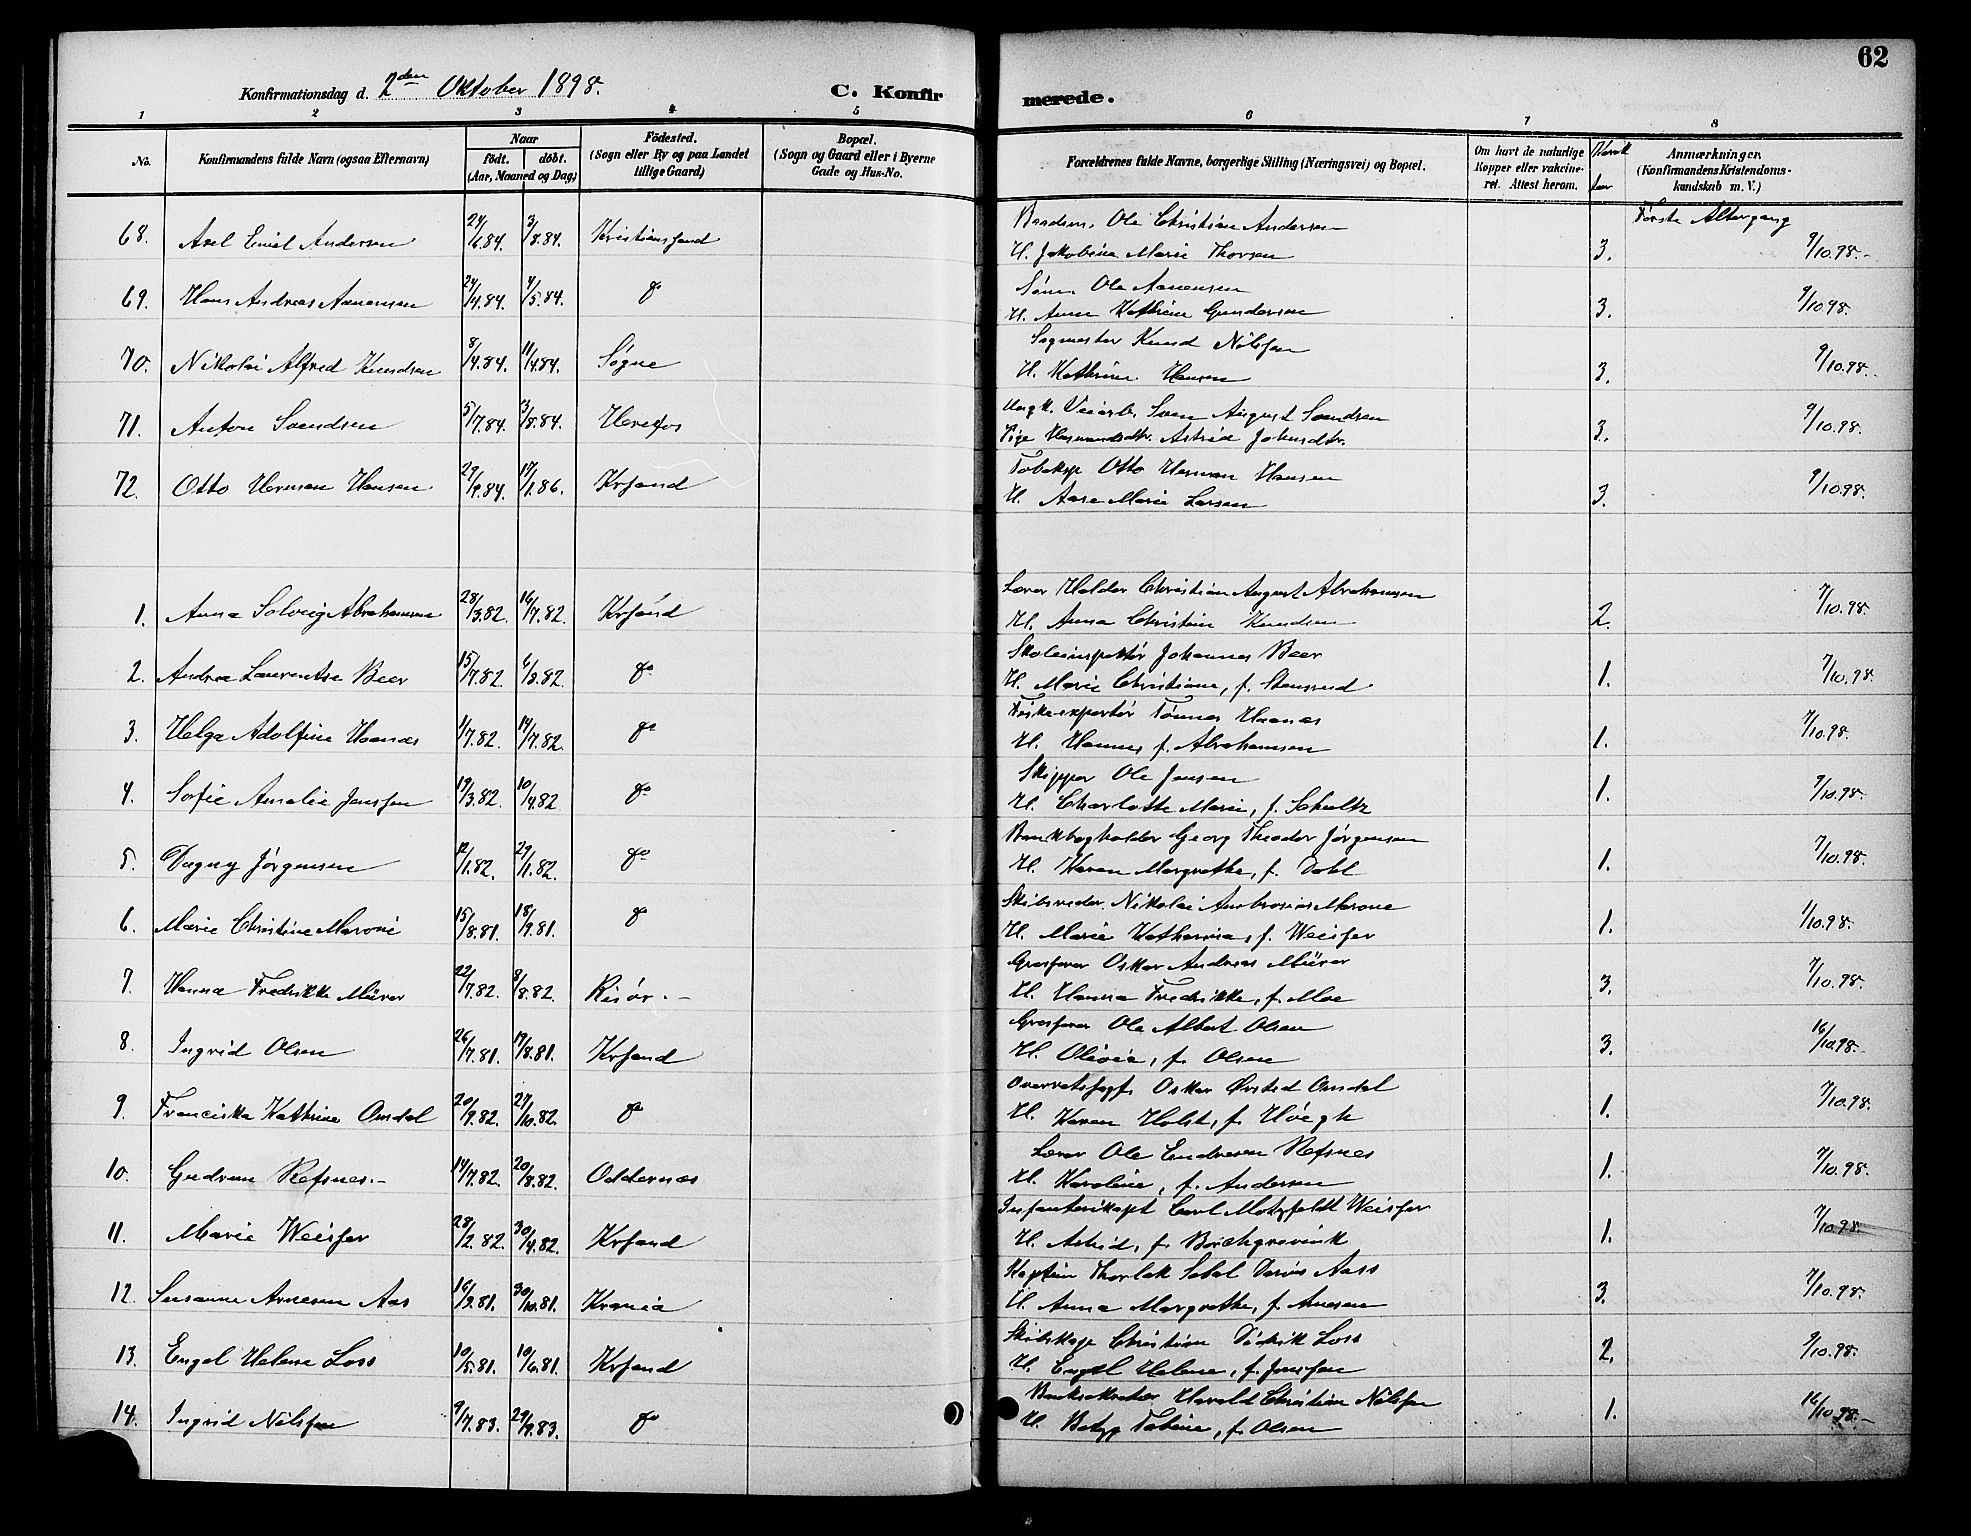 62
Konfirmationsdag d. 2den Oktober 1898.
C. Konfir merede.
1 2 3 4 5 6 7 8
No.
Konfirmandens fulde Navn (ogsaa Efternavn)
Naar
födt. döbt.
(Aar, Maaned og Dag)
Födested.
(Sogn eller By og paa Landet
tillige Gaard)
Bopæl.
(Sogn og Gaard eller i Byerne
Gade og Hus-No.
Forældrenes fulde Navne, borgerlige Stilling (Næringsvei) og Bopæl.
Om havt de naturlige
Kopper eller vakcine-
ret. Attest herom.
Anmærkninger.
(Konfirmandens Kristendoms-
kundskab m. V.)
Første Altergang
68. Axel Emil Andersen 24/6.84. 3/8.84. Kristianssand Ole Christian Andersen
H. Jakobine Marie Thorsen 3. 9/10.98.
69. Hans Andreas Aanensen 24/4.84. 4/5.84. do Søm. Ole Aanensen
H. Anne Kathrine Gundersen 3. 9/10.98.
70. Nikolai Alfred Knudsen 8/4.84. 11/4.84. Søgne Sagmester Knud Nilssen
H. Kathrine Hansen 3. 9/10.98.
71. Anton Svendsen 5/7.84. 3/8.84. Herefos Ungk. Veiarb. Sven August Svendsen
Pige Husmandsdtr. Astrid Johnsdtr. 3. 9/10.98.
72. Otto Herman Hansen 27/9.84. 17/1.86. Krsand Otto Herman Hansen
H. Aase Marie Larsen 3. 9/10.98.
1. Anna Solveig Abrahamsen 28/3.82. 16/7.82. Krsand Lærer Halder Christian August Abrahamsen
H. Anna Christine Knudsen 2. 7/10.98.
2. Andrea Laurentse Beer 15/7.82. 6/8.82. do Skoleinspektør Johannes Beer
H. Marie Christiane, f. Stensrud 1. 7/10.98.
3. Helga Adolfine Haanæs 1/7.82. 14/7.82. do Fiskeexportør Tønnes Haanæs
H. Hanne, f. Abrahamsen 1. 7/10.98.
4. Sofie Amalie Janssen 19/3.82. 10/4.82 do Skipper Ole Jansen
H. Charlotte Marie, f. Schultz 1. 9/10.98.
5. Dagny Jörgensen 12/1.82. 29/1.82. do Bankbogholder Georg Theodor Jörgensen
H. Karen Margrethe, f. Dahl 1. 7/10.98.
6. Marie Christine Maroni 15/8.81. 18/9.81. do Skibsreder. Nikolai Ambrosius Marone
H. Marie Katharina, f. Weisser 1. /10.98.
7. Hanna Fredrikke Mürer 22/7.82. 8/8.82. Risør. Grosserer Oskar Andreas Mürer
H. Hanna Fredrikke, f. Moe 3. 7/10.98.
8. Ingrid Olsen 26/7.81. 19/8.81. Krsand Grosserer Ole Albert Olsen
H. Olivia, f. Olsen 3. 16/10.98.
9. Franciska Kathrine Omdal 20/9.82. 27/10.82. do Overretssagf. Oskar Ørsted Omdal
H. Karen Holst, f. Höegh 1. 7/10.98.
10. Gudrun Refsnes. 14/7.82. 20/8.82. Oddernæs Lærer Ole Endresen Refsnes
H. Karoline, f. Andersen 1. 7/10.98.
11. Marie Weisser 28/2.82. 30/4.82. Krsand Infanterikapt. Carl Motzfeldt Weisser
H. Astrid, f. Borchgrevink 1. 7/10.98.
12. Susanne Arnesen Aas 16/9.81. 30/10.81. Kaptein Thorlak Aass
H. Anna Margrethe, f. Arnesen 3. 7/10.98.
13. Engel Helene Loss 10/5.81. 19/6.81. Krsand Skibskap. Christian Didrik Loss
H. Engel Helene, f. Janssen 2. 9/10.98.
14. Ingrid Nilssen 9/7.83. 29/9.83. do Banksekretær Harald Christian Nilssen
H. Betzy Tobine, f. Olsen 1. 16/10.98.